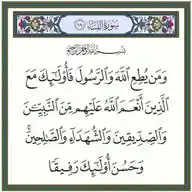 سورة النساء (٦٩)
بسم الله الرحمن الرحيم
وَمَن يُطِعِ اللَّهَ وَالرَّسُولَ فَأُولَٰئِكَ مَعَ
الَّذِينَ أَنْعَمَ اللَّهُ عَلَيْهِم مِّنَ النَّبِيِّينَ
وَالصِّدِّيقِينَ وَالشُّهَدَاءِ وَالصَّالِحِينَ ۚ
وَحَسُنَ أُولَٰئِكَ رَفِيقًا